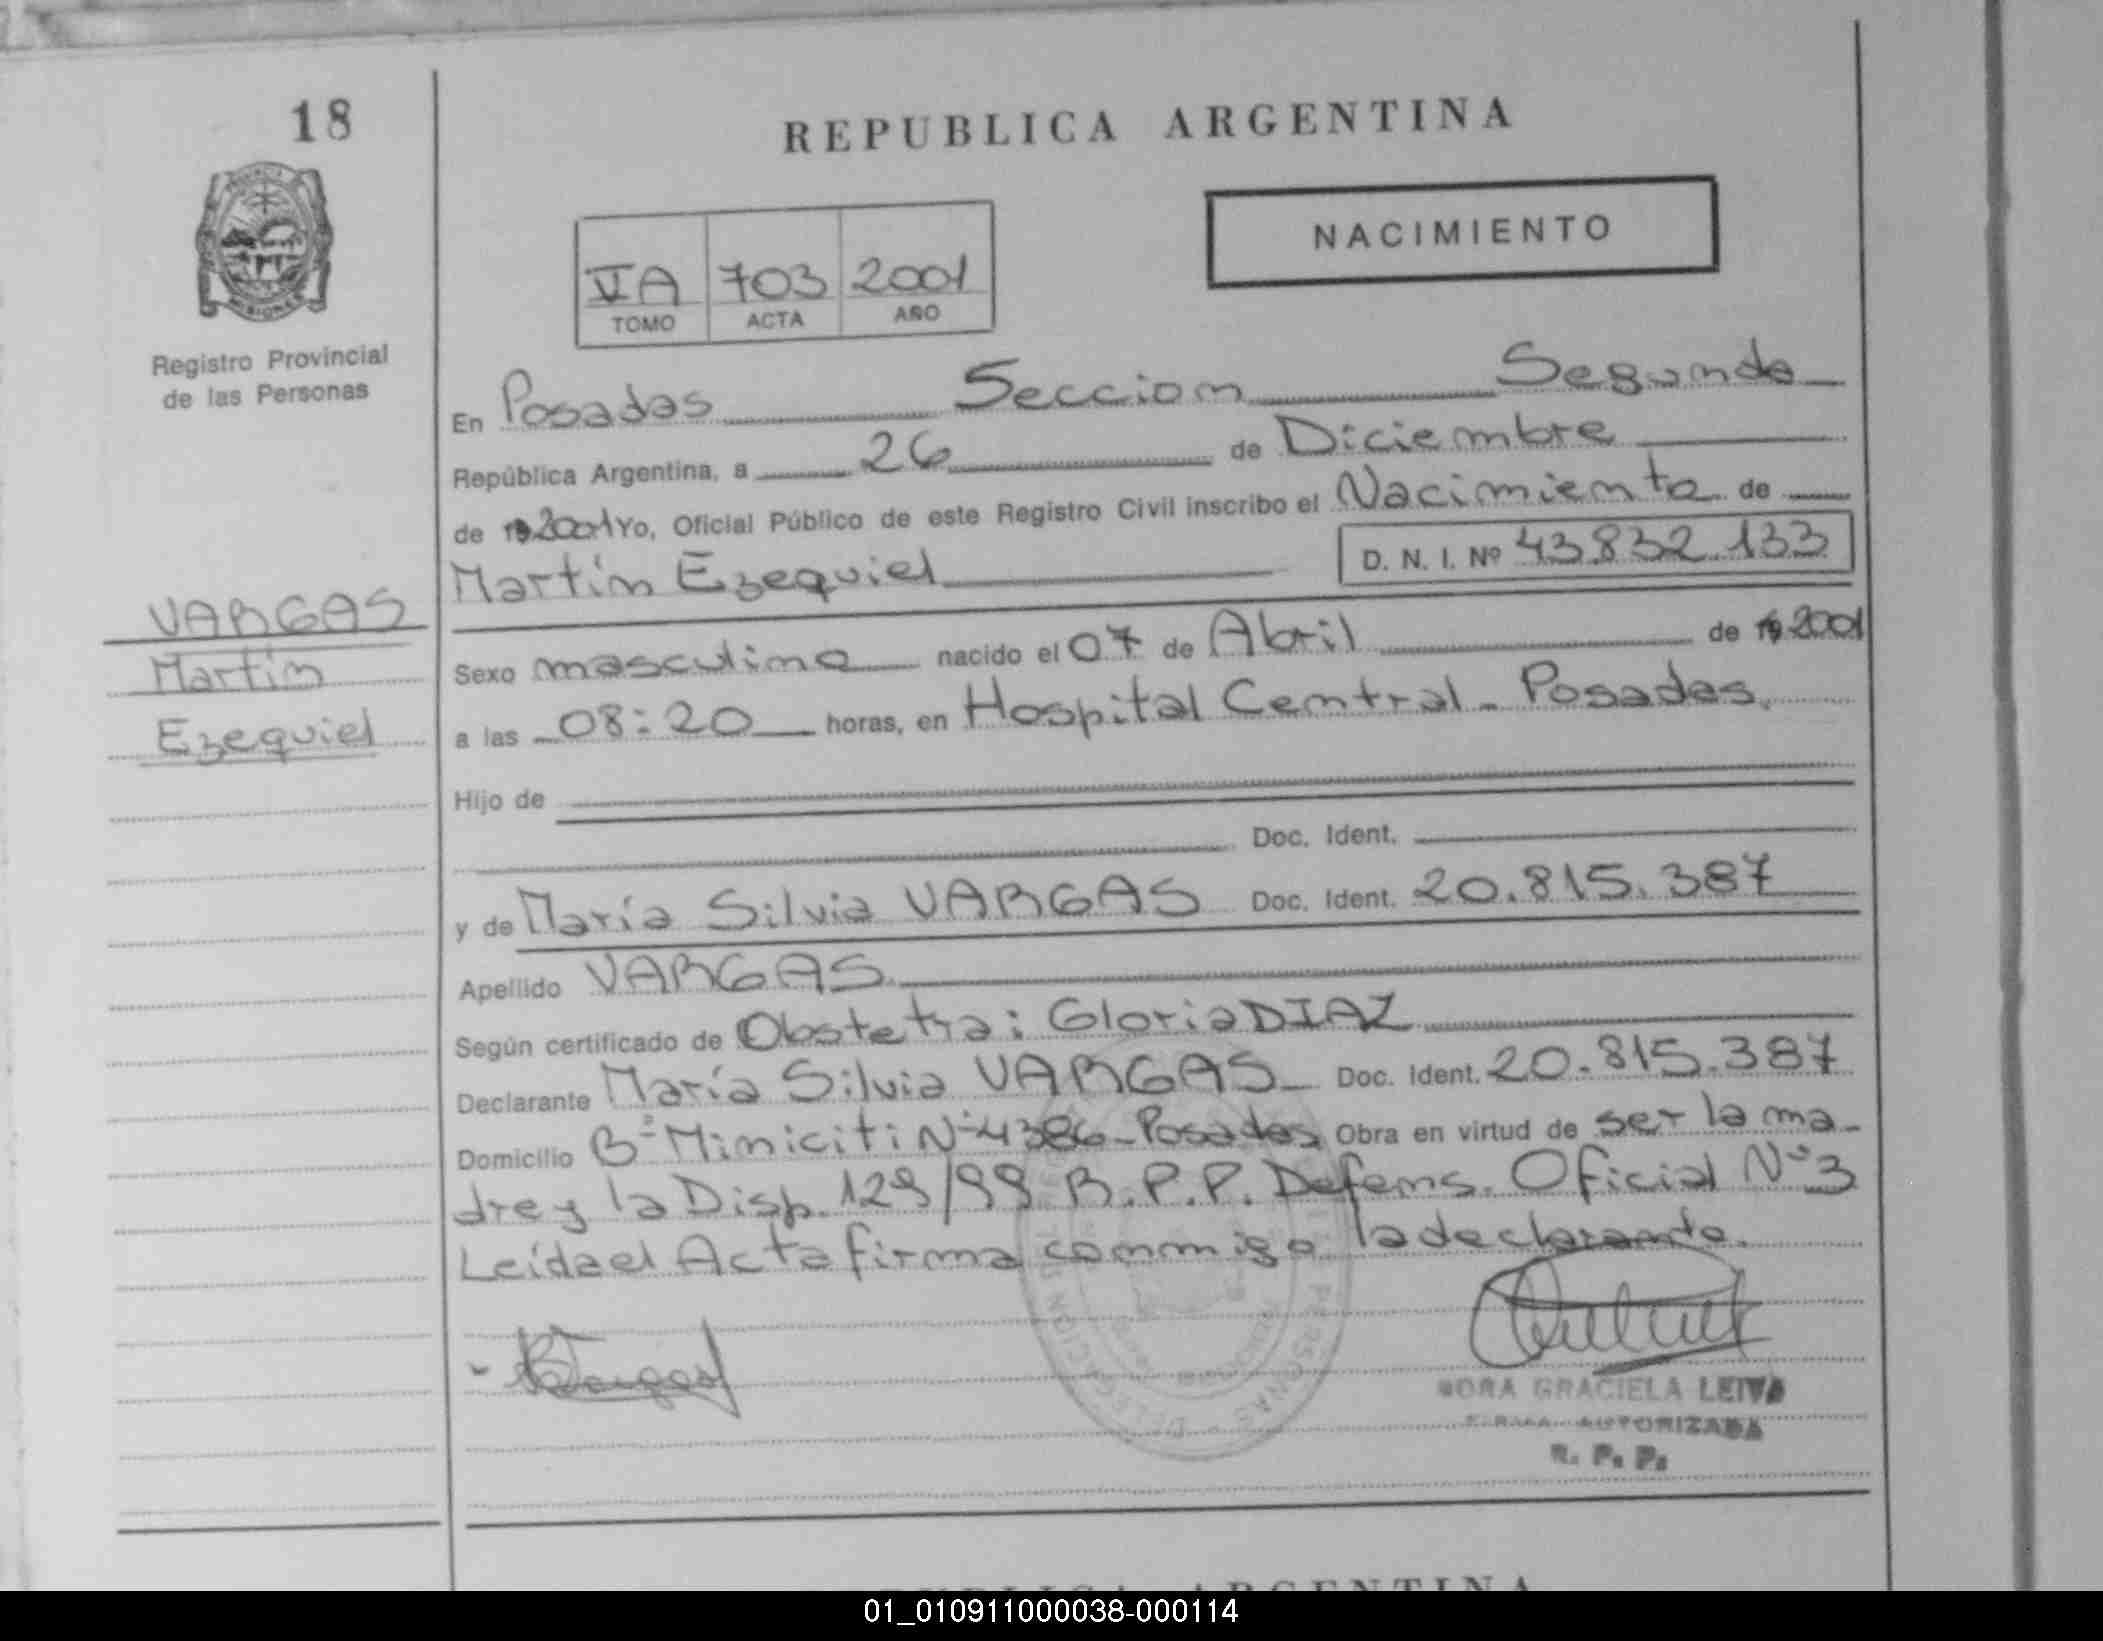 18
REPUBLICA ARGENTINA
NACIMIENTO
VA 703 2001
TOMO ACTA AÑO
MISIONES
Registro Provincial
de las Personas
VARGAS
Martín
Ezequiel
En Posadas Seccion Segunda
República Argentina, a 26 de Diciembre
de 2001 Yo, Oficial Público de este Registro Civil inscribo el Nacimiento de
Martín Ezequiel D. N. I. Nº 43.832.133
Sexo masculino nacido el 07 de Abril de 2001
a las 08:20 horas, en Hospital Central - Posadas.
Hijo de
Doc. Ident.
y de María Silvia VARGAS Doc. Ident. 20.815.387
Apellido VARGAS
Según certificado de Obstetra: Gloria DIAZ
Declarante María Silvia VARGAS - Doc. Ident. 20.815.387
Domicilio Bº Miniciti Nº 4386 - Posadas Obra en virtud de ser la ma-
dre y la Disp. 129/99 R.P.P. Defens. Oficial Nº 3
Leída el Acta firma conmigo la declarante.
NORA GRACIELA LEIVA
FIRMA AUTORIZADA
R. P. P.
REPUBLICA ARGENTINA
01_010911000038-000114